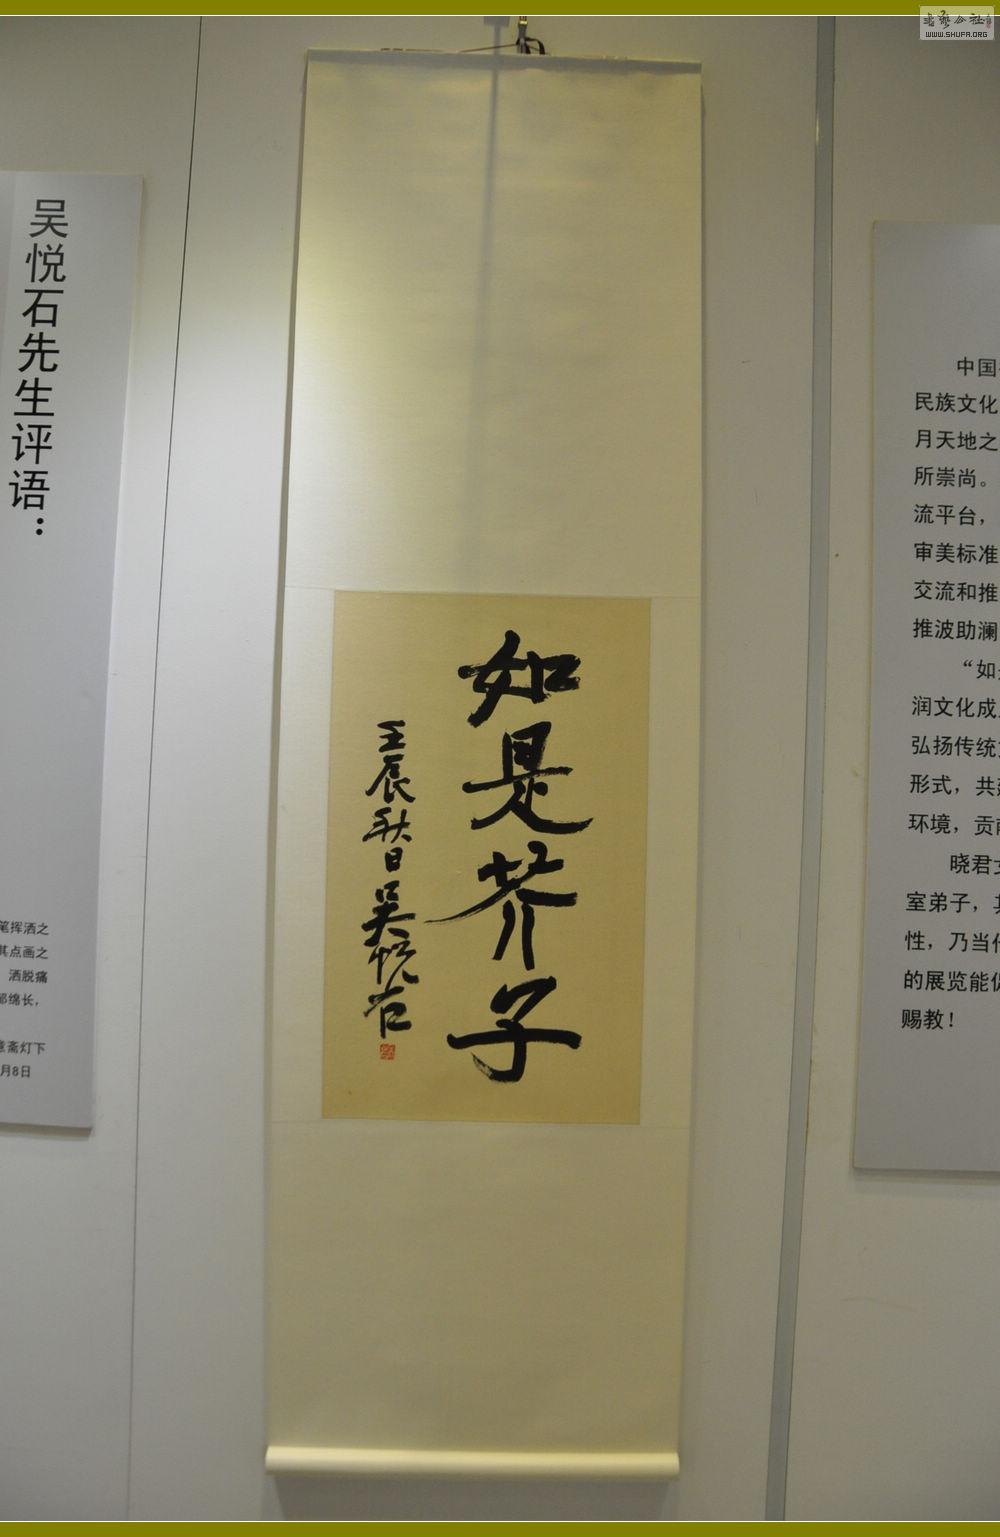 吴悦石先生评语：
笔挥洒之
其点画之
洒脱痛
部绵长，
意斋灯下
月8日
如是芥子
壬辰秋日吴悦石
中国
民族文化
月天地之
所崇尚。
流平台，
审美标准
交流和推
推波助澜
“如是
润文化成
弘扬传统
形式，共
环境，贡献
晓君女
室弟子，
性，乃当代
的展览能促
赐教！
书艺公社
WWW.SHUFA.ORG